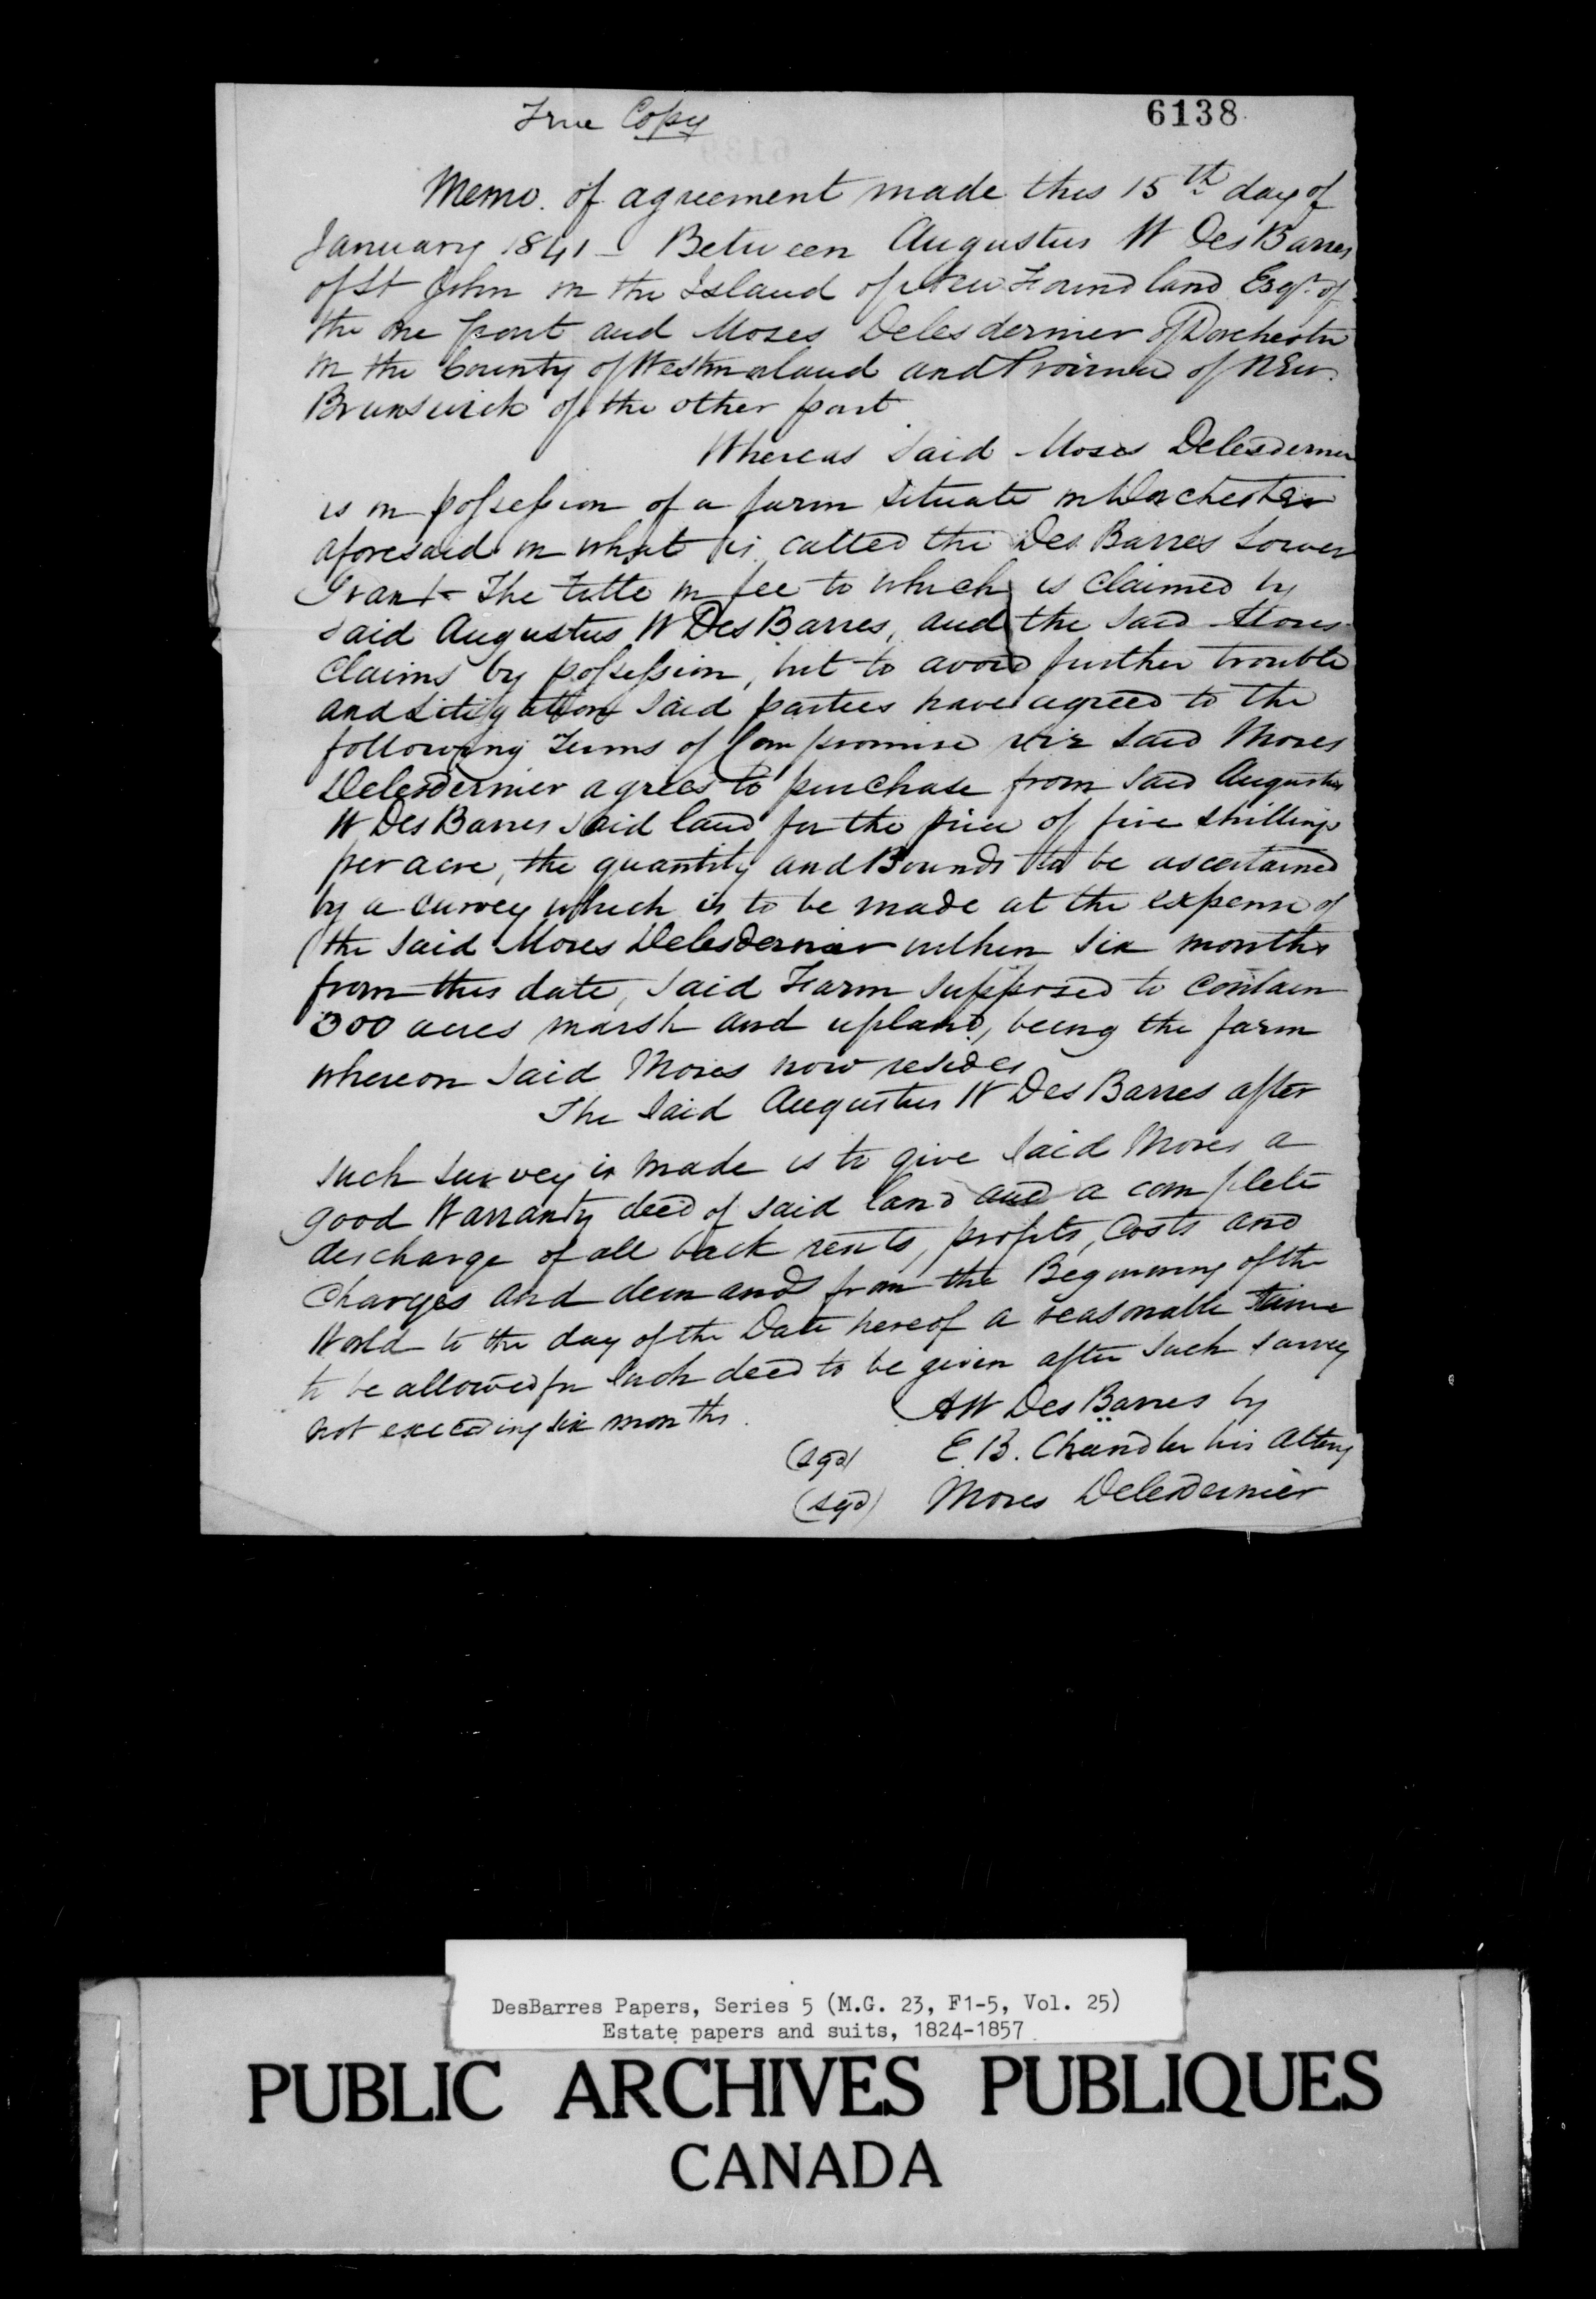 True Copy
6138
Memo. of agreement made this 15th day of
January 1841 - Between Augustus W DesBarres
of St John in the Island of New Foundland Esqr. of
the one part and Moses Delesdernier of Dorchester
in the County of Westmorland and Province of New
Brunswick of the other part
Whereas Said Moses Delesdernier
is in possession of a farm Situate in Dorchester
aforesaid in what is called the Des Barres Lower
Grant - The title in fee to which is Claimed by
Said Augustus W DesBarres, and the Said Moses
Claims by possession, but to avoid further trouble
and Litigation Said parties have agreed to the
following Terms of Compromise viz Said Moses
Delesdernier agrees to purchase from Said Augustus
W DesBarres Said land for the price of five Shillings
per acre, the quantity and Bounds to be ascertained
by a Survey which is to be made at the expense of
the Said Moses Delesdernier within Six months
from this date, Said Farm Supposed to Contain
300 acres marsh and upland, being the farm
whereon Said Moses now resides
The Said Augustus W DesBarres after
Such Survey is made is to give Said Moses a
good Warranty deed of Said land and a complete
discharge of all back rents, profits, Costs and
Charges and demands from the Beginning of the
World to the day of the Date hereof a reasonable time
to be allowed for Such deed to be given after Such Survey
not exceeding Six months.
AW DesBarres by
(sgd) E. B. Chandler his Attny
(sgd) Moses Delesdernier
DesBarres Papers, Series 5 (M.G. 23, F1-5, Vol. 25)
Estate papers and suits, 1824-1857
PUBLIC ARCHIVES PUBLIQUES
CANADA